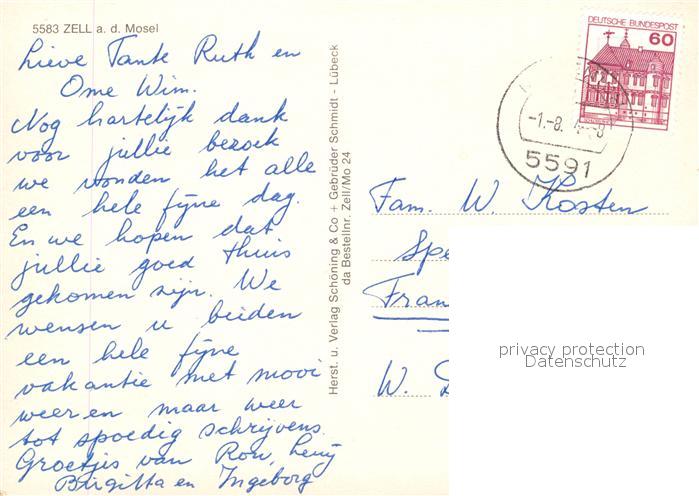 5583 ZELL a. d. Mosel
Lieve Tante Ruth en
Ome Wim.
Nog hartelijk dank
voor jullie bezoek
we vonden het alle
een hele fijne dag.
En we hopen dat
jullie goed thuis
gekomen zijn. We
wensen u beiden
een hele fijne
vakantie met mooi
weer en maar weer
tot spoedig schrijvens.
Groetjes van Ron, Leny
Birgitta en Ingeborg
Herst. u. Verlag Schöning & Co + Gebrüder Schmidt - Lübeck
da Bestellnr. Zell/Mo 24
DEUTSCHE BUNDESPOST
60
-1.-8.
5591
Fam. W. Kosten
Spe
Fran
W. D
privacy protection
Datenschutz